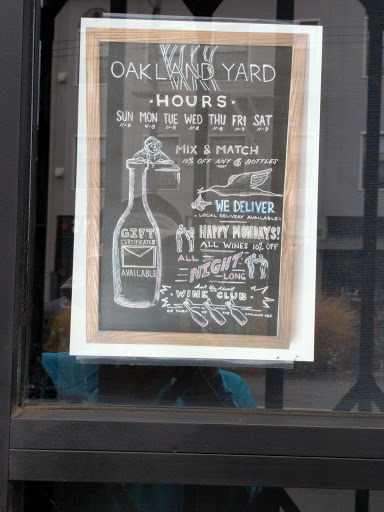 OAKLAND YARD
• HOURS •
SUN MON TUE WED THU FRI SAT
11-8 4-8 11-8 11-8 11-8 11-9 11-9
MIX & MATCH
10% OFF ANY 6 BOTTLES
WE DELIVER
• LOCAL DELIVERY AVAILABLE •
GIFT
CERTIFICATES
AVAILABLE
HAPPY MONDAYS!
ALL WINES 10% OFF
ALL
NIGHT
LONG
ask us about
• WINE CLUB •
BE PART OF THE